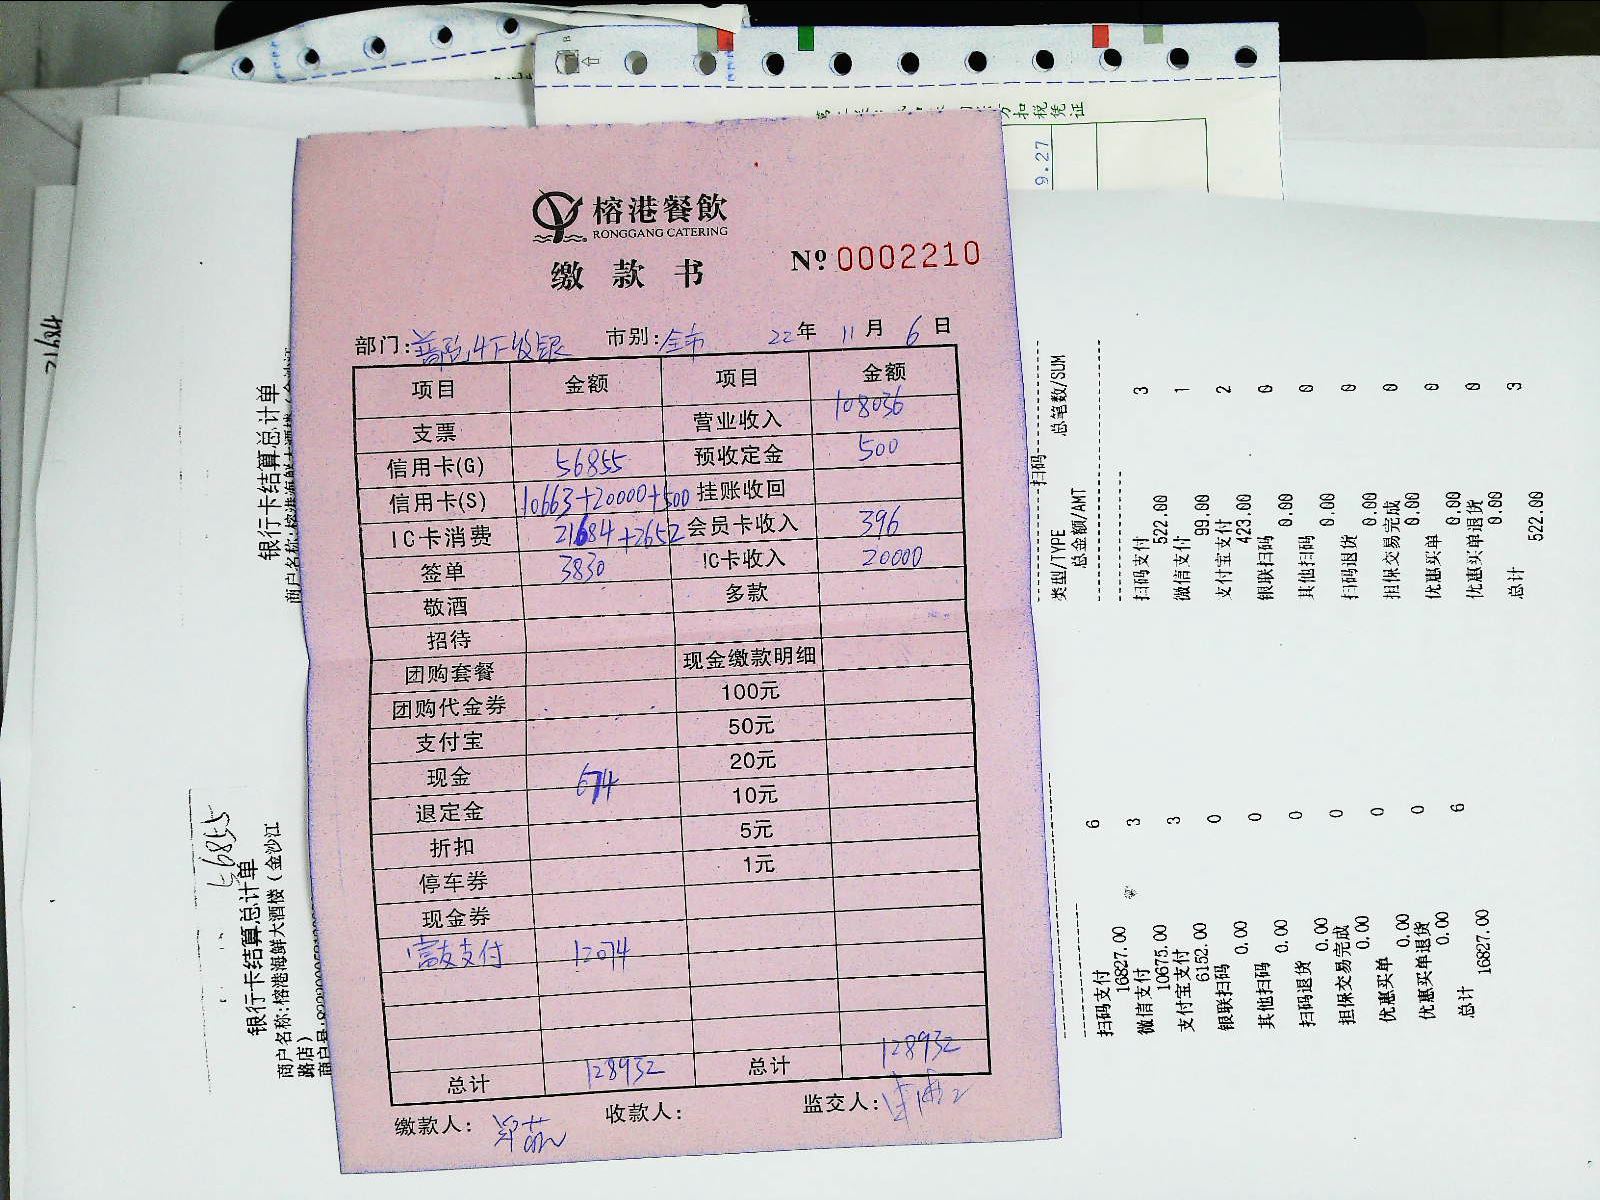 方扣税凭证
9.27
榕港餐飲
RONGGANG CATERING
缴款书
№ 0002210
部门: 市别:全市 22年 11月 6日
项目 金额 项目 金额
支票 营业收入 108036
信用卡(G) 56855 预收定金 500
信用卡(S) 10663+20000+500 挂账收回
IC卡消费 21684+2652 会员卡收入 396
签单 3830 IC卡收入 20000
敬酒 多款
招待
团购套餐 现金缴款明细
团购代金券 100元
支付宝 50元
现金 674 20元
退定金 10元
折扣 5元
停车券 1元
现金券
富友支付 12074
总计 128932 总计 128932
缴款人: 收款人: 监交人:
21684
银行卡结算总计单
商户名称:榕港海鲜大酒楼(金沙江
56855
银行卡结算总计单
商户名称:榕港海鲜大酒楼(金沙江
路店)
扫码
类型/TYPE 总笔数/SUM
总金额/AMT
扫码支付 3
522.00
微信支付 1
99.00
支付宝支付 2
423.00
银联扫码 0
0.00
其他扫码 0
0.00
扫码退货 0
0.00
担保交易完成 0
0.00
优惠买单 0
0.00
优惠买单退货 0
0.00
总计 3
522.00
扫码支付 6
16827.00
微信支付 3
10675.00
支付宝支付 3
6152.00
银联扫码 0
0.00
其他扫码 0
0.00
扫码退货 0
0.00
担保交易完成 0
0.00
优惠买单 0
0.00
优惠买单退货 0
0.00
总计 6
16827.00